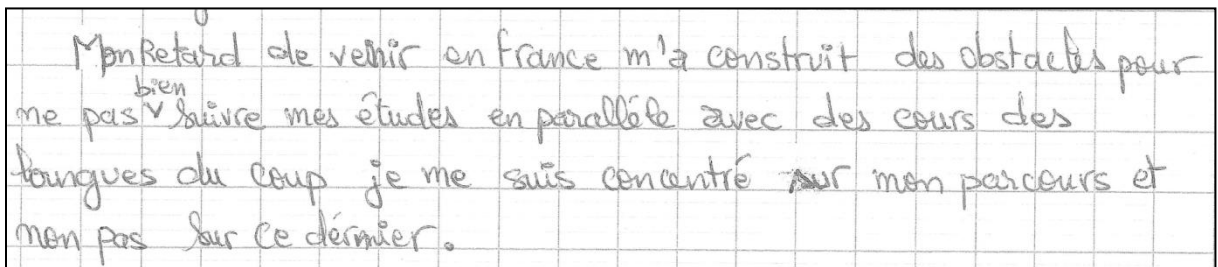 Mon Retard de venir en france m'a construit des obstacles pour
ne pas bien suivre mes études en paralléle avec des cours des
langues du coup je me suis concentré sur mon parcours et
mon pas sur ce dérnier.